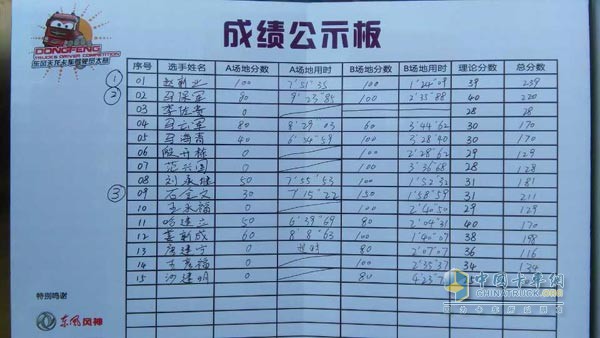 DONGFENG
TRUCKS DRIVER COMPETITION
东风天龙卡车驾驶员大赛
成绩公示板
序号 选手姓名 A场地分数 A场地用时 B场地分数 B场地用时 理论分数 总分数
① 01 赵新业 100 7'51"35 100 1'24"09 39 239
② 02 马保军 80 9'23"85 100 2'35"88 40 220
03 0 28 28
04 马云军 80 8'29"03 60 3'44"62 30 170
05 马海青 40 6'34"59 100 3'28"40 30 170
06 0 100 2'28"62 29 129
07 范兴国 0 100 3'36"68 28 128
08 刘永继 50 7'55"53 100 1'52"32 31 181
③ 09 石全文 30 7'15"22 150 1'58"59 31 211
10 王永福 0 100 2'40"50 29 129
11 哈建立 50 6'39"69 80 2'04"31 40 170
12 姜新成 60 8'8"63 100 1'40"07 38 198
13 0 超时 80 2'07"07 36 116
14 0 100 2'35"37 34 134
15 沙建明 0 80 4'23"
特别鸣谢
东风风神
中国卡车网
CHINATRUCK.COM